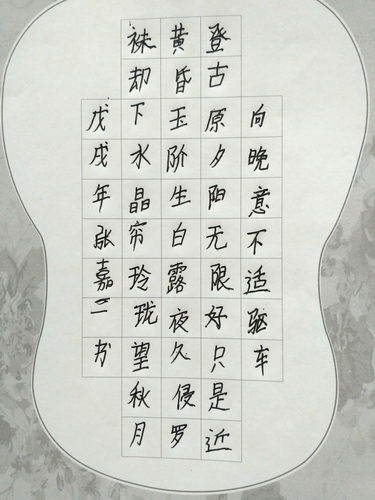 向晚意不适驱车
登古原夕阳无限好只是近
黄昏玉阶生白露夜久侵罗
袜却下水晶帘玲珑望秋月
戊戌年张嘉二书